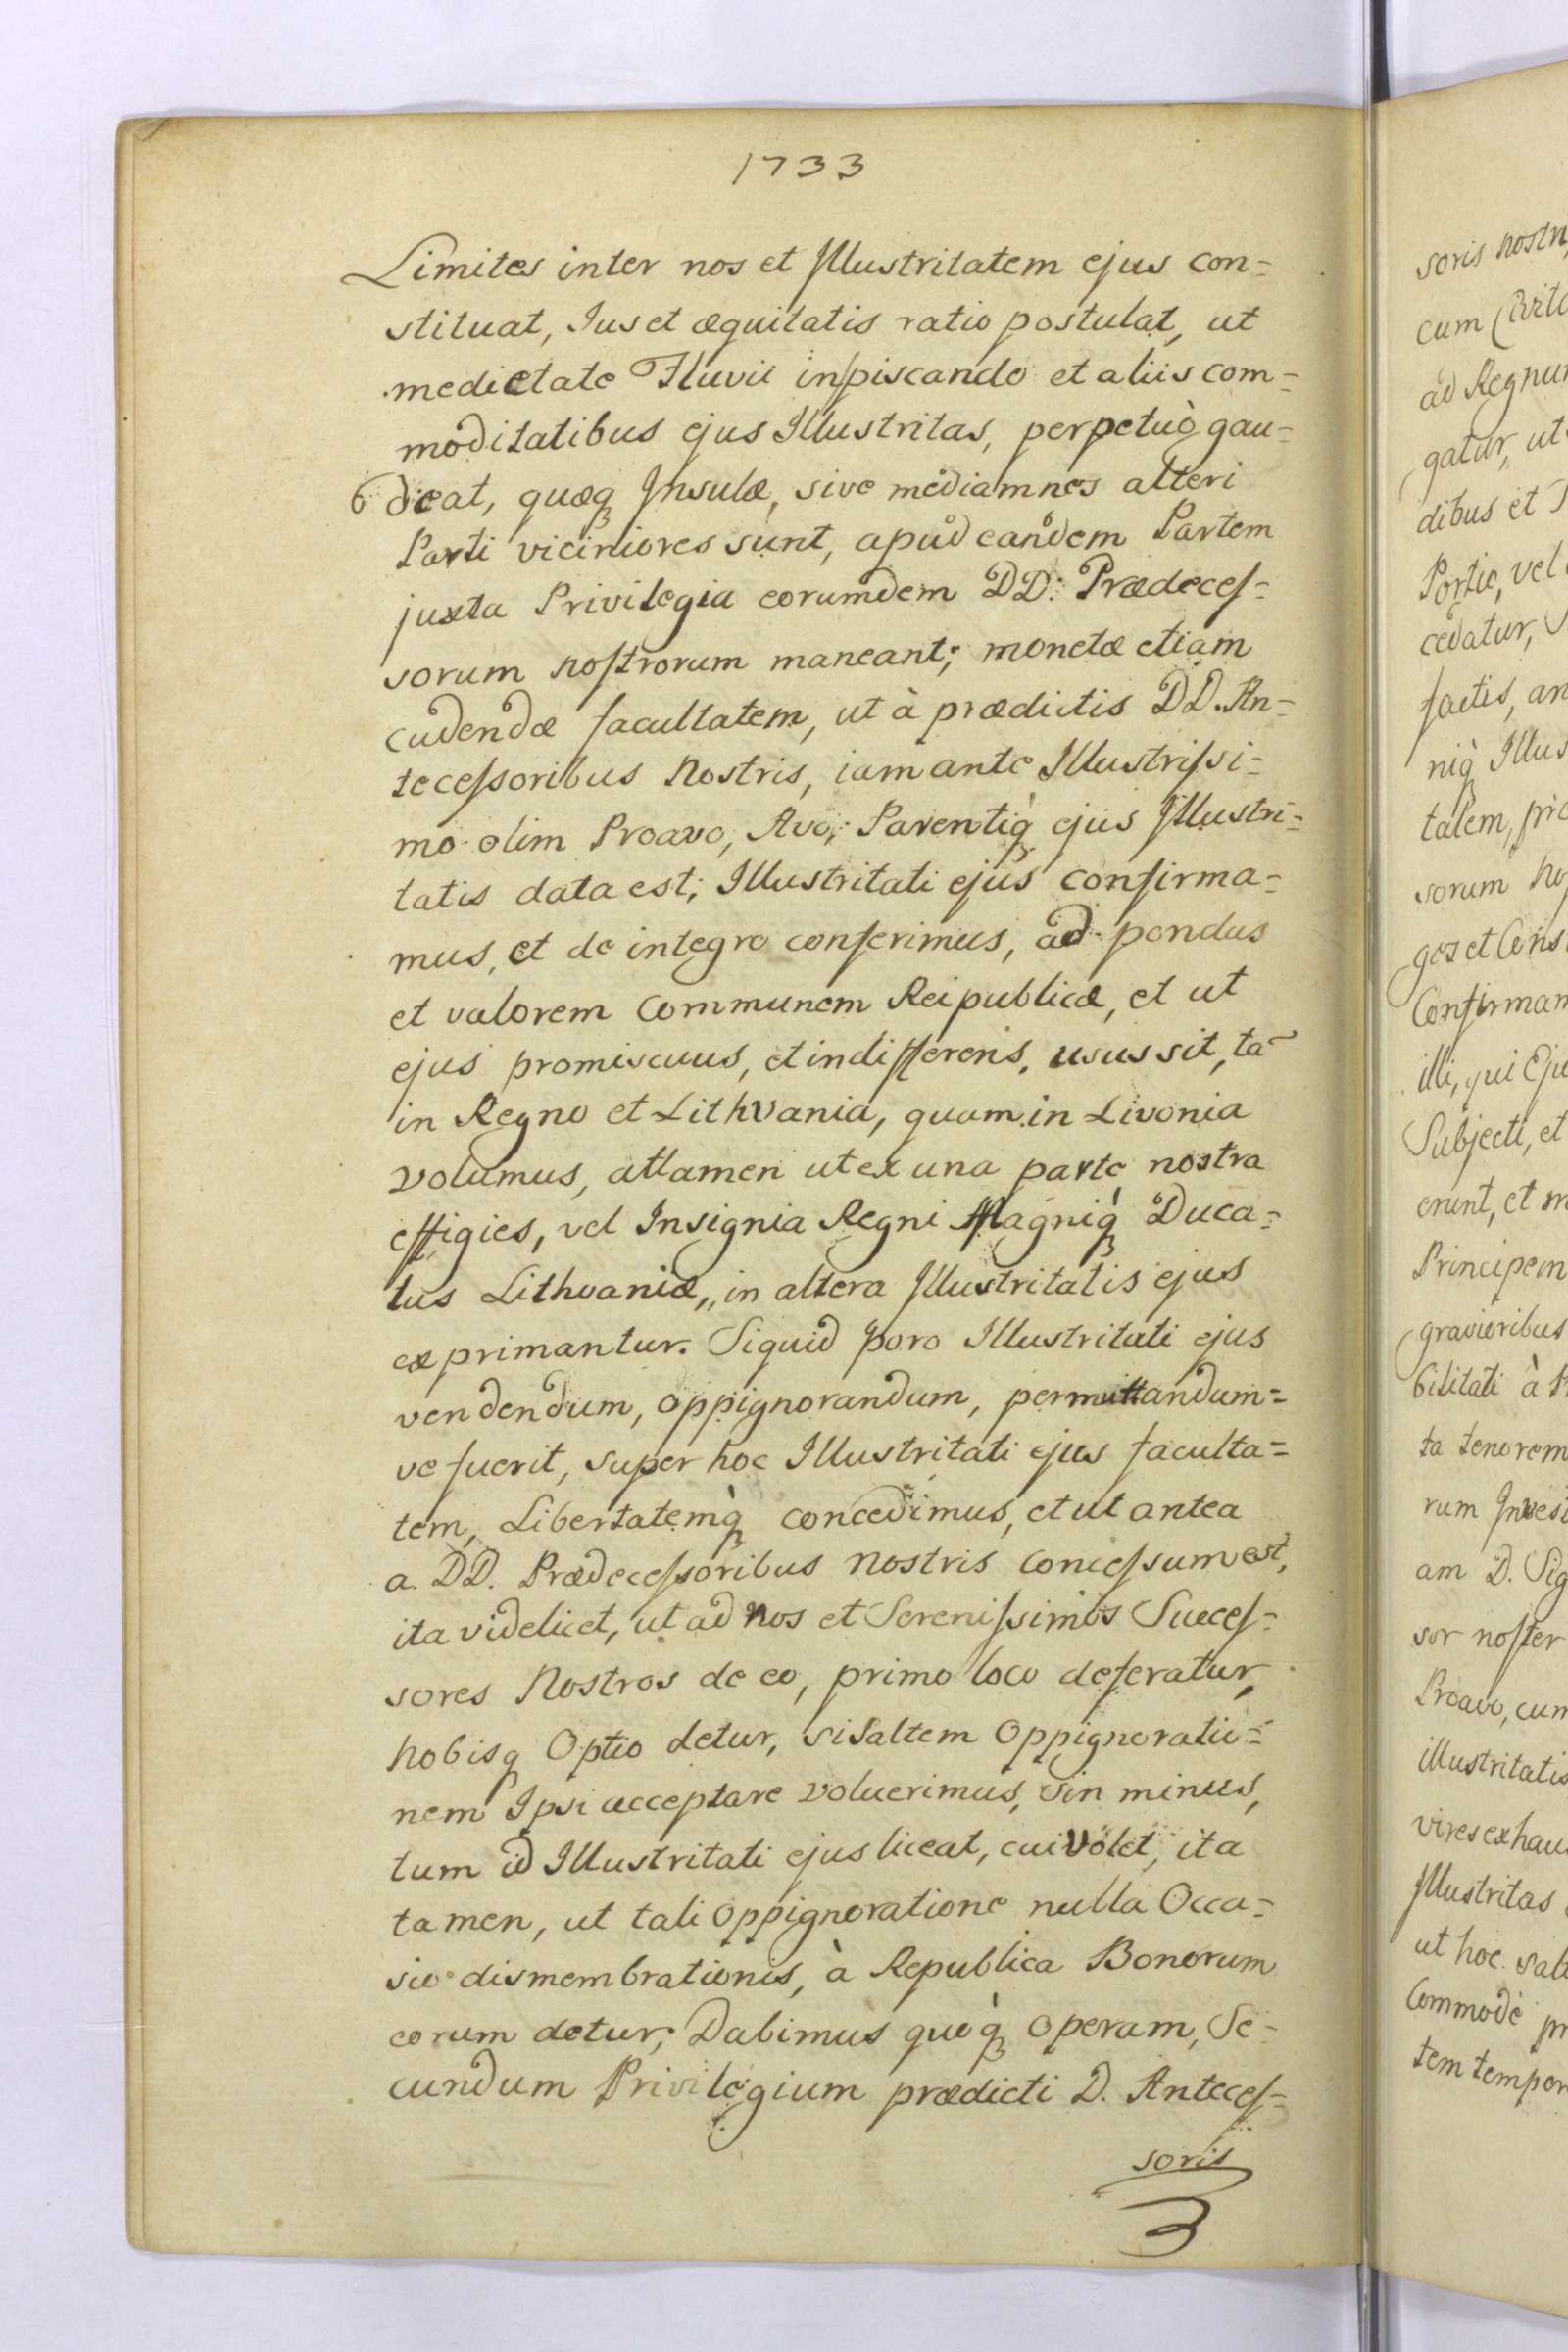 1733
Limites inter nos et Illustritatem ejus con=
stituat, Jus et æquitatis ratio postulat, ut
medietate Fluvii inpiscando et aliis com=
moditatibus ejus Illustritas, perpetuò gau=
deat, quæq Insulæ, sive mediamnes alteri
Parti viciniores sunt, apud eandem Partem
juxta Privilegia eorumdem DD: Prædeces=
sorum nostrorum maneant; monetæ etiam
cudendæ facultatem, ut à prædictis DD. An=
tecessoribus Nostris, iam ante Illustrissi=
mo olim Proavo, Avo, Parentiq ejus Illustri=
tatis data est; Illustritati ejus confirma=
mus, et de integro conferimus, ad pondus
et valorem communem Reipublicæ, et ut
ejus promiscuus, et indifferens, usus sit, tã
in Regno et Lithvania, quam in Livonia
volumus, attamen ut ex una parte nostra
effigies, vel Insignia Regni Magniq Duca=
tus Lithvaniæ, in altera Illustritatis ejus
exprimantur. Siquid poro Illustritati ejus
vendendum, oppignorandum, permuttandum=
ve fuerit, super hoc Illustritati ejus faculta=
tem, Libertatemq concedimus, et ut antea
a DD. Prædecessoribus nostris concessum est,
ita videlicet, ut ad nos et Serenissimos Succes=
sores Nostros de eo, primo loco deferatur,
nobisq Optio detur, si saltem Oppignoratio=
nem Ipsi acceptare voluerimus, sin minus,
tum id Illustritati ejus liceat, cui volet, ita
tamen, ut tali oppignoratione nulla Occa=
sio dismembrationis, à Republica Bonorum
eorum detur; Dabimus quoq operam, Se=
cundum Privilegium prædicti D. Anteces=
soris
soris nostri
cum
ad Regnum
gatur, ut
dibus et
Portio, vel
cedatur,
factis, an
niq Illus
talem, pri
sorum
ges et Cons
Confirmam
illi, qui Eju
Subjecti, et
erunt, et m
Principem
gravioribus
bilitati à
ta tenorem
rum Invest
am D. Sig
sor noster
Proavo, cum
illustritatis
vires exhau
Illustritas
ut hoc salt
Commodè pr
tem tempor